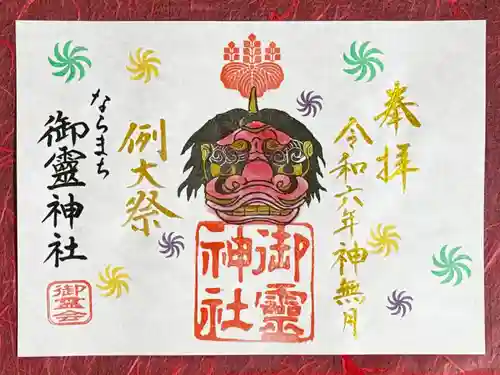 奉拝
令和六年神無月
御靈神社
例大祭
ならまち
御靈神社
御霊会